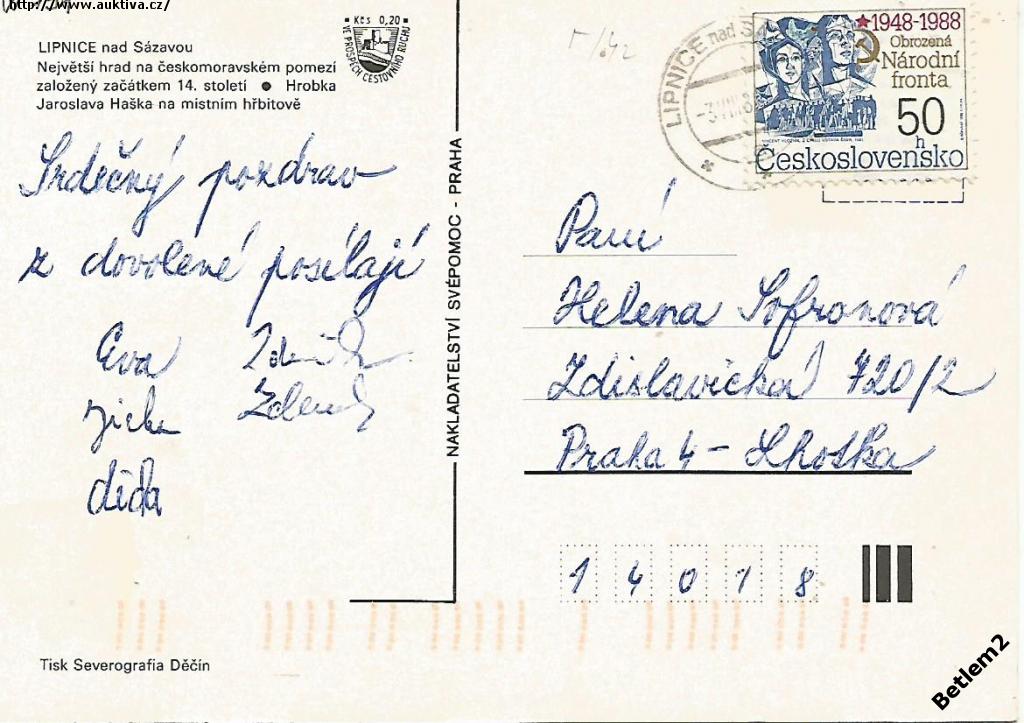 http://www.auktiva.cz/
LIPNICE nad Sázavou
Největší hrad na českomoravském pomezí
založený začátkem 14. století ● Hrobka
Jaroslava Haška na místním hřbitově
Kčs 0,20
VE PROSPĚCH CESTOVNÍHO RUCHU
Srdečný pozdrav
z dovolené posílají
Eva
Zdeněk
dída
NAKLADATELSTVÍ SVÉPOMOC - PRAHA
LIPNICE nad
★1948-1988
Obrozená
Národní
fronta
50
h
Československo
Paní
Helena Sofronová
Zdislavická 720/2
Praha 4 - Lhotka
1 4 0 1 8
Tisk Severografia Děčín
Betlem2